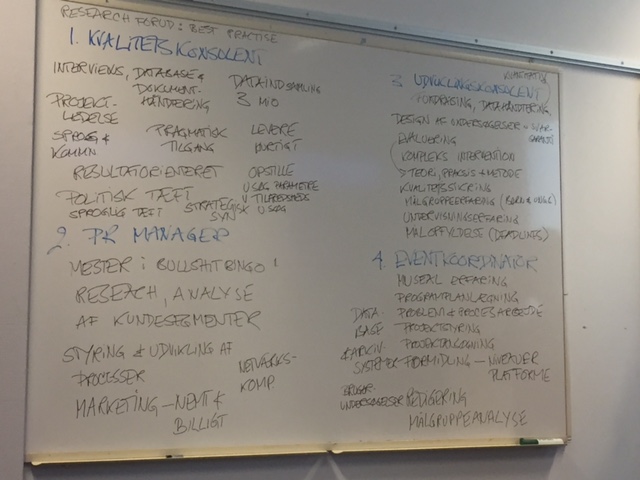 RESEARCH FORUD: BEST PRACTISE
1. KVALITETSKONSOLENT
INTERVIEWS, DATABASE &
DOKUMENT-
HÅNDTERING
DATAINDSAMLING
3 MIO
PROJEKT-
LEDELSE
SPROG &
KOMMN
PRAGMATISK
TILGANG
LEVERE
HURTIGT
RESULTATORIENTERET
OPSTILLE
USAG PARAMETRE
V TILFREDSHEDS
USAG
POLITISK TÆFT
SPROGLIG TÆFT
STRATEGISK
SYN
2. PR MANAGER
MESTER I BULLSHITBINGO!
RESEACH, ANALYSE
AF KUNDESEGMENTER
STYRING & UDVIKLING AF
PROCESSER
NETVÆRKS-
KOMP.
MARKETING - NEMT &
BILLIGT
3 UDVIKLINGSKONSOLENT
KVANTITATIV
DATAHÅNDTERING,
DESIGN AF UNDERSØGELSER =
EVALUERING
KOMPLEKS INTERVENTION
TEORI, PRAKSIS & METODE
KVALITETSSIKRING
MÅLGRUPPEERFARING (BØRN & UNGE)
UNDERVISNINGSERFARING
MÅLOPFYLDELSE (DEADLINES)
4. EVENTKOORDINATOR
MUSEAL ERFARING
PROGRAMPLANLÆGNING
PROBLEM & PROCESARBEJDE
PROJEKTSTYRING
DATA-
BASE
& ARKIV-
SYSTEMER
FORMIDLING - NIVEAUER
PLATFORME
BRUGER-
UNDERSØGELSER
REDIGERING
MÅLGRUPPEANALYSE